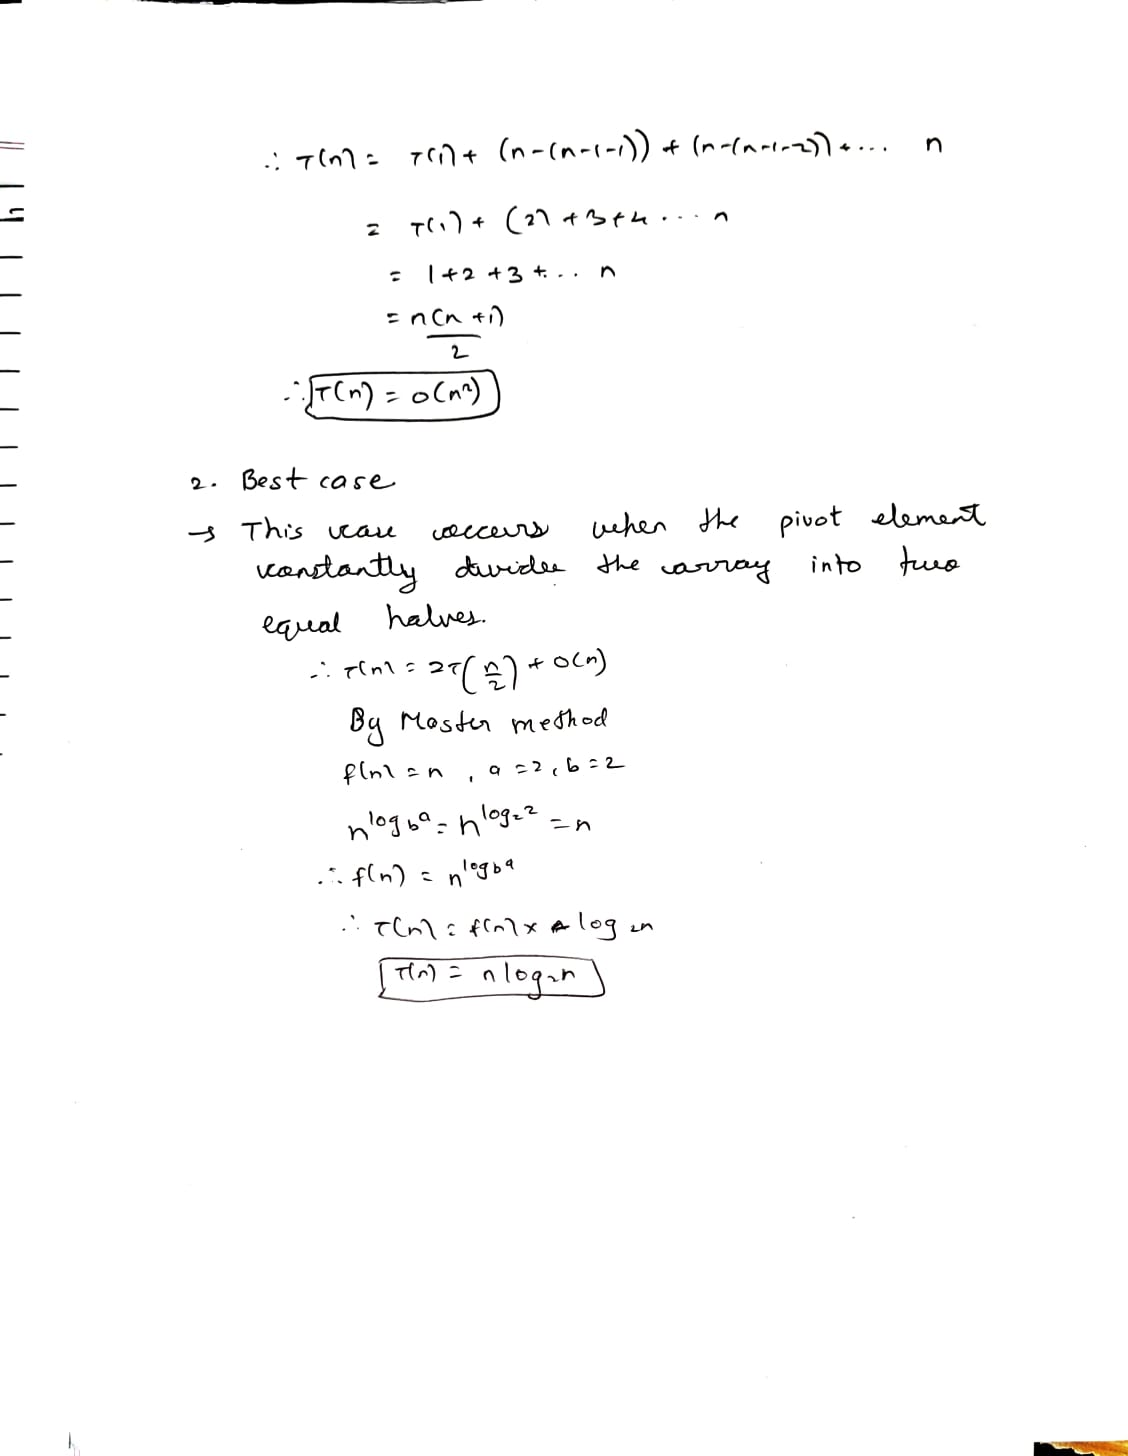 ∴ T(n) = T(1) + (n-(n-1-1)) + (n-(n-1-2)) + ... n
= T(1) + (2) + 3 + 4 .... n
= 1 + 2 + 3 + ... n
= n(n+1)
2
∴ T(n) = O(n²)
2. Best case
→ This case occurs when the pivot element
constantly divides the array into two
equal halves.
∴ T(n) = 2T(n/2) + O(n)
By Master method
f(n) = n , a = 2, b = 2
n^log_b a = n^log_2 2 = n
∴ f(n) = n^log_b a
∴ T(n) = f(n) × log_2 n
T(n) = n log_2 n